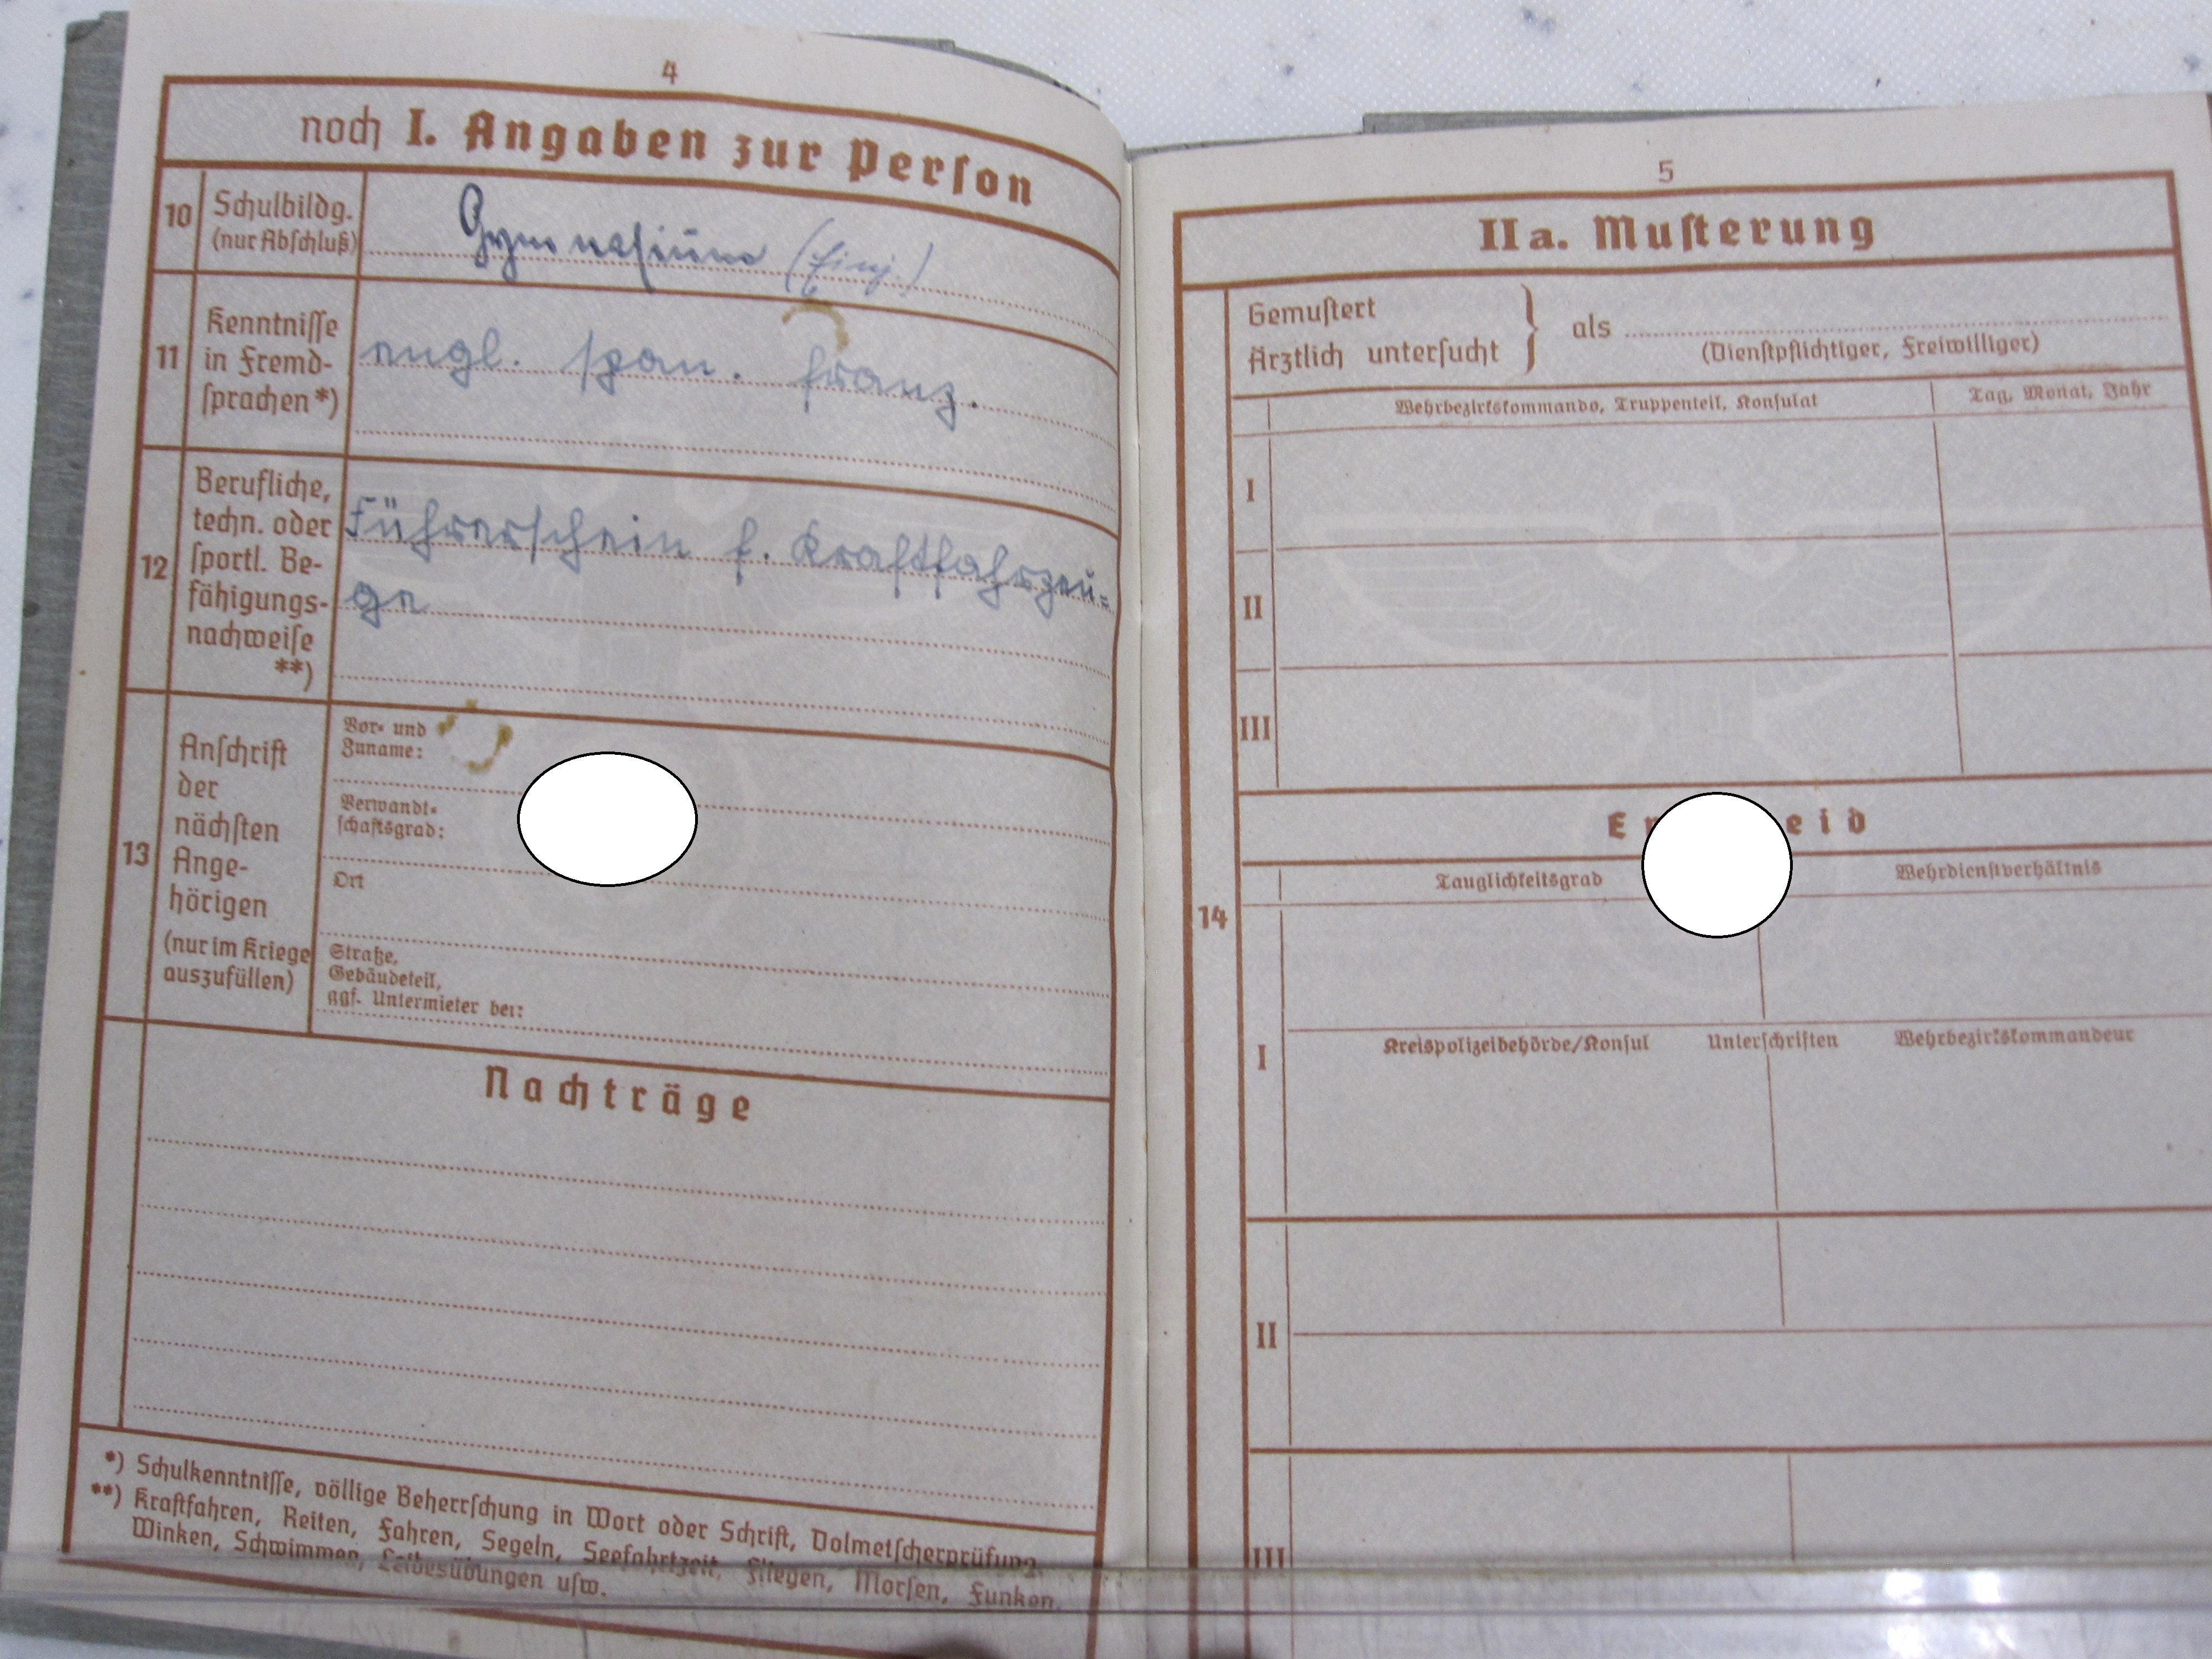 4
noch I. Angaben zur Person
10
Schulbildg.
(nur Abschluß)
Gymnasium (Einj.)
11
Kenntnisse
in Fremd-
sprachen *)
engl. span. franz.
12
Berufliche,
techn. oder
sportl. Be-
fähigungs-
nachweise
**)
Führerschein f. Kraftfahrzeu-
ge
13
Anschrift
der
nächsten
Ange-
hörigen
(nur im Kriege
auszufüllen)
Vor- und
Zuname:
Verwandt-
schaftsgrad:
Ort
Straße,
Gebäudeteil,
ggf. Untermieter bei:
Nachträge
*) Schulkenntnisse, völlige Beherrschung in Wort oder Schrift, Dolmetscherprüfung.
**) Kraftfahren, Reiten, Fahren, Segeln, Seefahrtzeit, Fliegen, Morsen, Funken,
Winken, Schwimmen, Leibesübungen usw.
5
II a. Musterung
Gemustert
Ärztlich untersucht
} als
(Dienstpflichtiger, Freiwilliger)
Wehrbezirkskommando, Truppenteil, Konsulat
Tag, Monat, Jahr
I
II
III
14
E eid
Tauglichkeitsgrad
Wehrdienstverhältnis
I
Kreispolizeibehörde/Konsul Unterschriften Wehrbezirkskommandeur
II
III